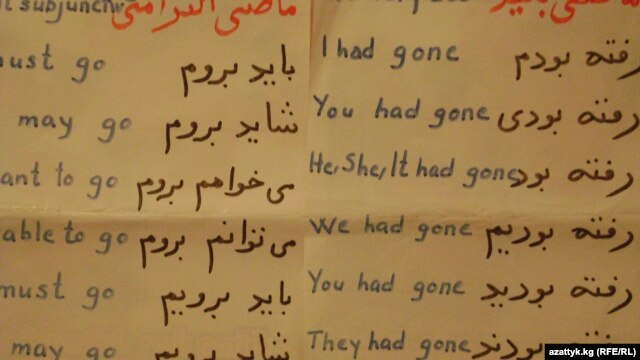 ماضی التزامی
must go باید بروم
may go شاید بروم
want to go می خواهم بروم
able to go می توانم بروم
must go باید برویم
may go شاید برویم
I had gone رفته بودم
You had gone رفته بودی
He, She, It had gone رفته بود
We had gone رفته بودیم
You had gone رفته بودید
They had gone رفته بودند
azattyk.kg (RFE/RL)